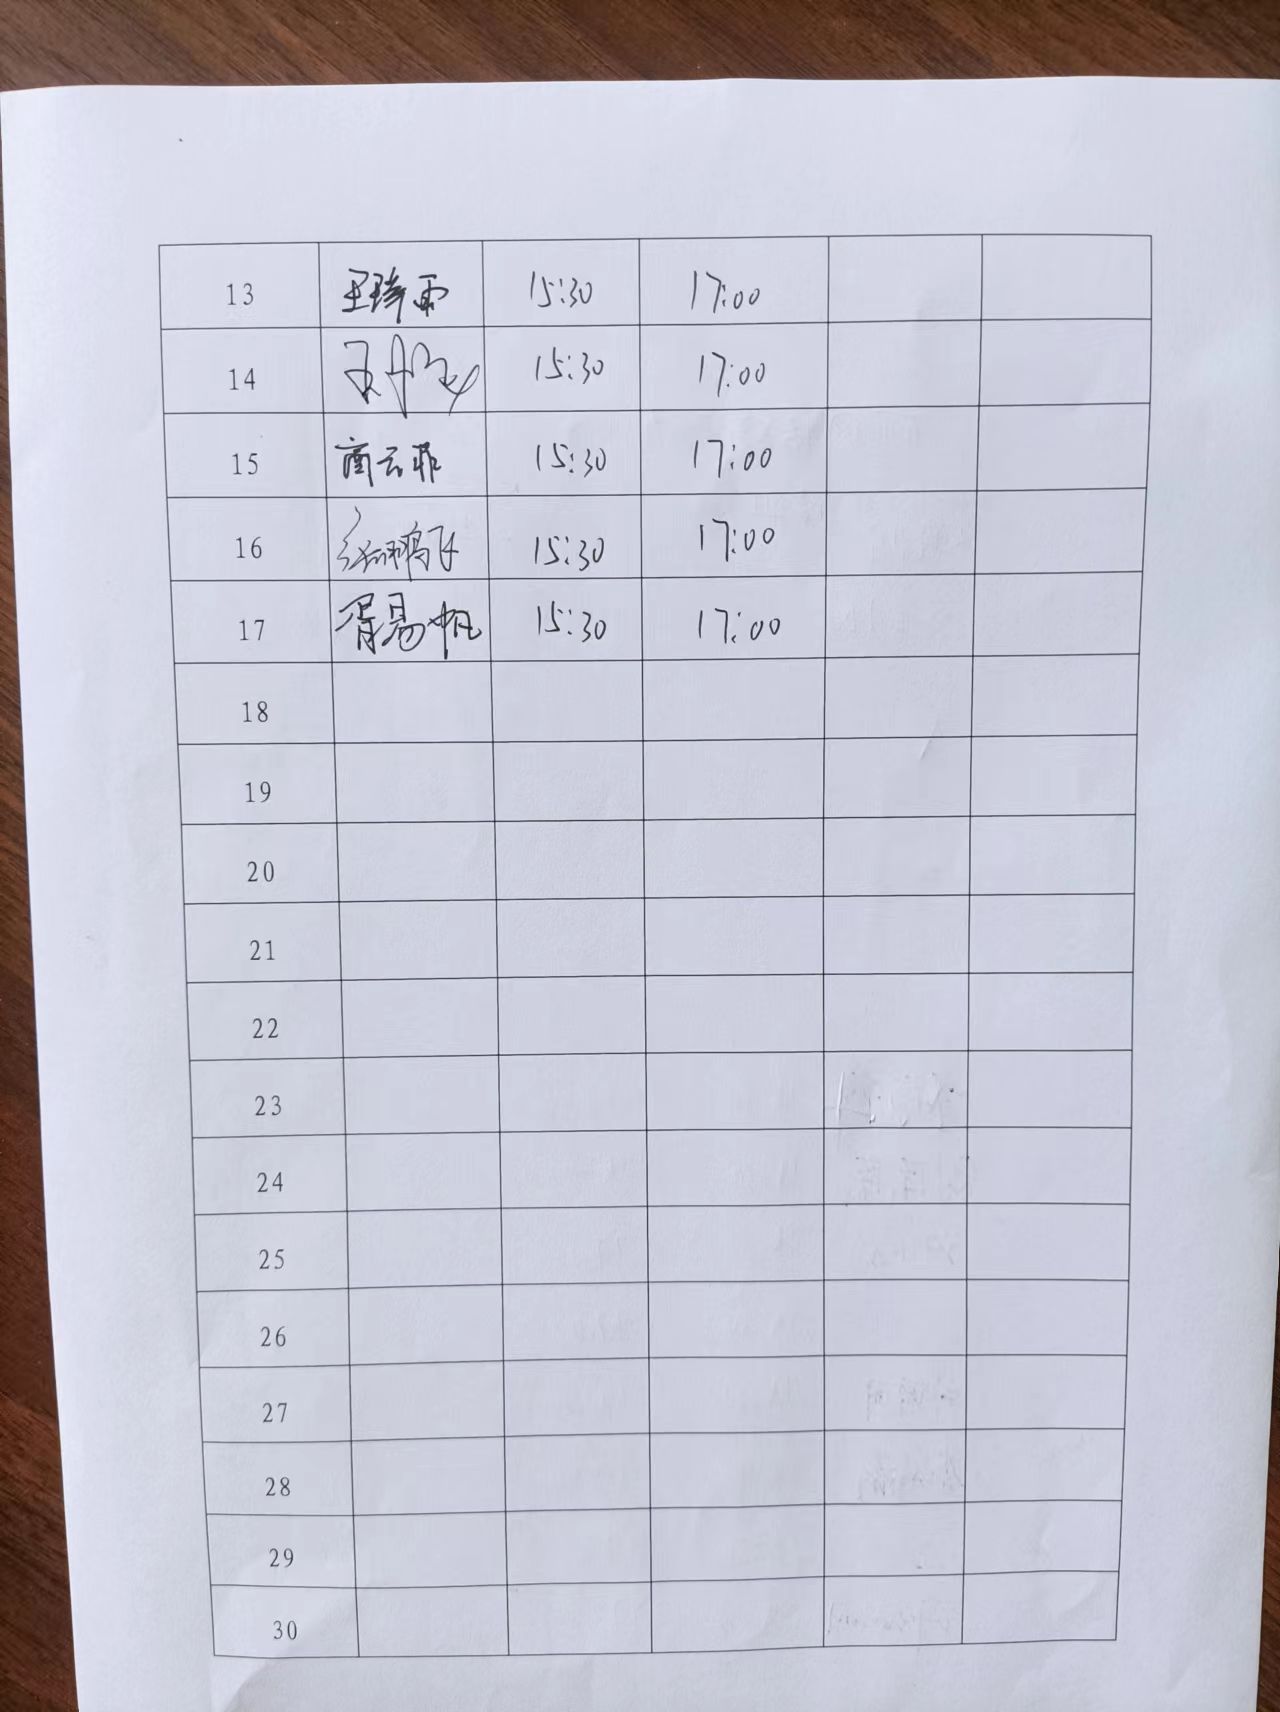 13 王琦雨 15:30 17:00
14 王 15:30 17:00
15 商云菲 15:30 17:00
16 鹏飞 15:30 17:00
17 胥易帆 15:30 17:00
18
19
20
21
22
23
24
25
26
27
28
29
30